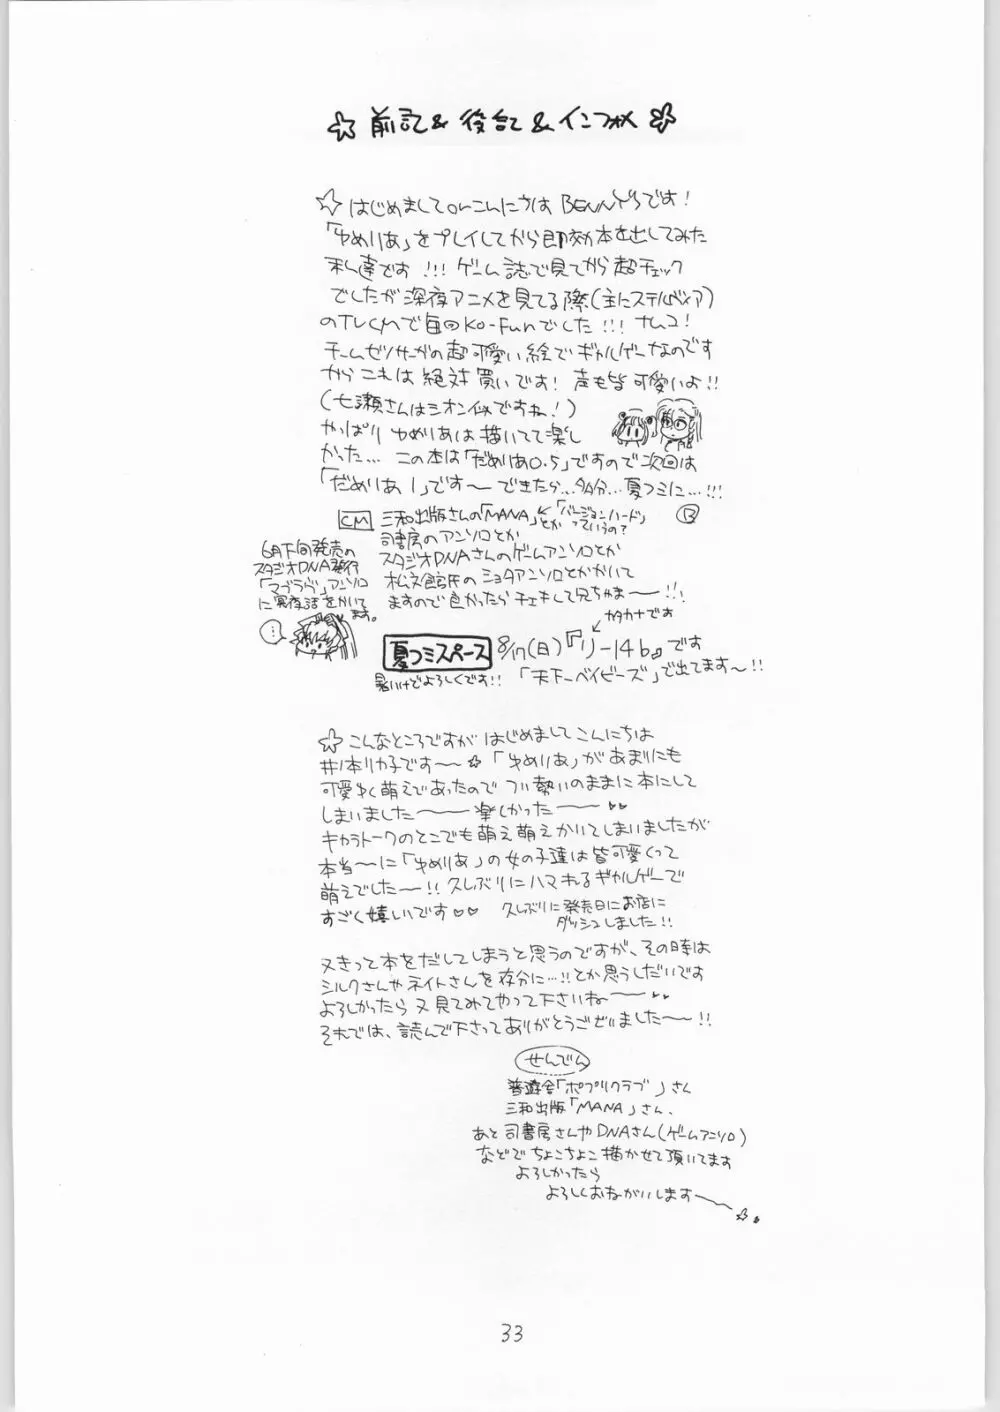 ☆前記&後記&インフォメ☆
☆はじめましてorこんにちは BENNY'Sです!
「ゆめりあ」をプレイしてから即効本を出してみた
私達です!!! ゲーム誌で見てから超チェック
でしたが深夜アニメを見てる際(主にステルヴィア)
のTVCMで毎回Ko-Funでした!!! ナムコ!
チームゼノサーガの超可愛い絵でギャルゲーなのです
からこれは絶対買いです! 声も皆可愛いよ!!
(七瀬さんはシオン似ですね!)
やっぱりゆめりあは描いてて楽し
かった… この本は「だめりあ0.5」ですので次回は
「だめりあ1」です〜できたら…多分…夏コミに…!!!
CM 三和出版さんの「MANA」とか ←「バージョンハード」っていうの?
司書房のアンソロとか
スタジオDNAさんのゲームアンソロとか
松文館氏のショタアンソロとかかいて
ますので良かったらチェキして兄ちゃま〜!!!
6月下旬発売の
スタジオDNA発行
「マブラヴ」アンソロ
に冥夜話をかいて
ます。
…
カタカナです
夏コミスペース 8/17(日)『リ-14b』です
暑いけどよろしくです!! 「天下一ベイビーズ」で出てます〜!!
☆こんなところですがはじめましてこんにちは
井ノ本リカ子です〜☆「ゆめりあ」があまりにも
可愛ゆく萌えであったのでつい勢いのままに本にして
しまいました〜〜楽しかった〜〜♥♥
キャラトークのとこでも萌え萌えかいてしまいましたが
本当〜に「ゆめりあ」の女の子達は皆可愛くって
萌えでした〜!! 久しぶりにハマれるギャルゲーで
すごく嬉しいです♥♥ 久しぶりに発売日にお店に
ダッシュしました!!
又きって本をだしてしまうと思うのですが、その時は
シルクさんやネイトさんを存分に…!!とか思うしだいです
よろしかったら又見てみてやって下さいね〜〜♥♥
それでは、読んで下さってありがとうございました〜〜!!
せんでん
普遊舎「ポプリクラブ」さん
三和出版「MANA」さん、
あと司書房さんやDNAさん(ゲームアンソロ)
などでちょこちょこ描かせて頂いてます
よろしかったら
よろしくおねがいします〜〜☆。
33